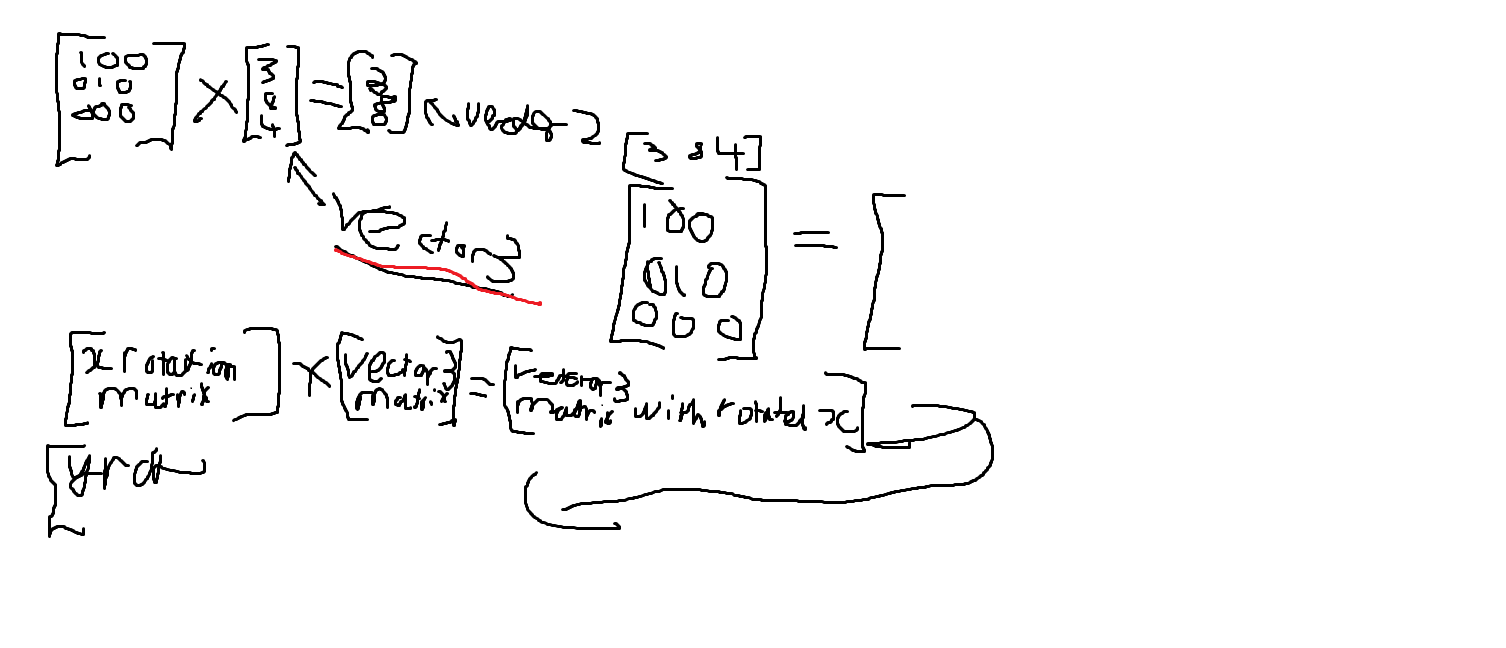 1 0 0
0 1 0
0 0
× 3
4
=
vector 2
[3 8 4]
vector3
1 0 0
0 1 0
0 0 0
=
x rotation
matrix
× vector3
matrix
= vector3
matrix with rotated x
y rot